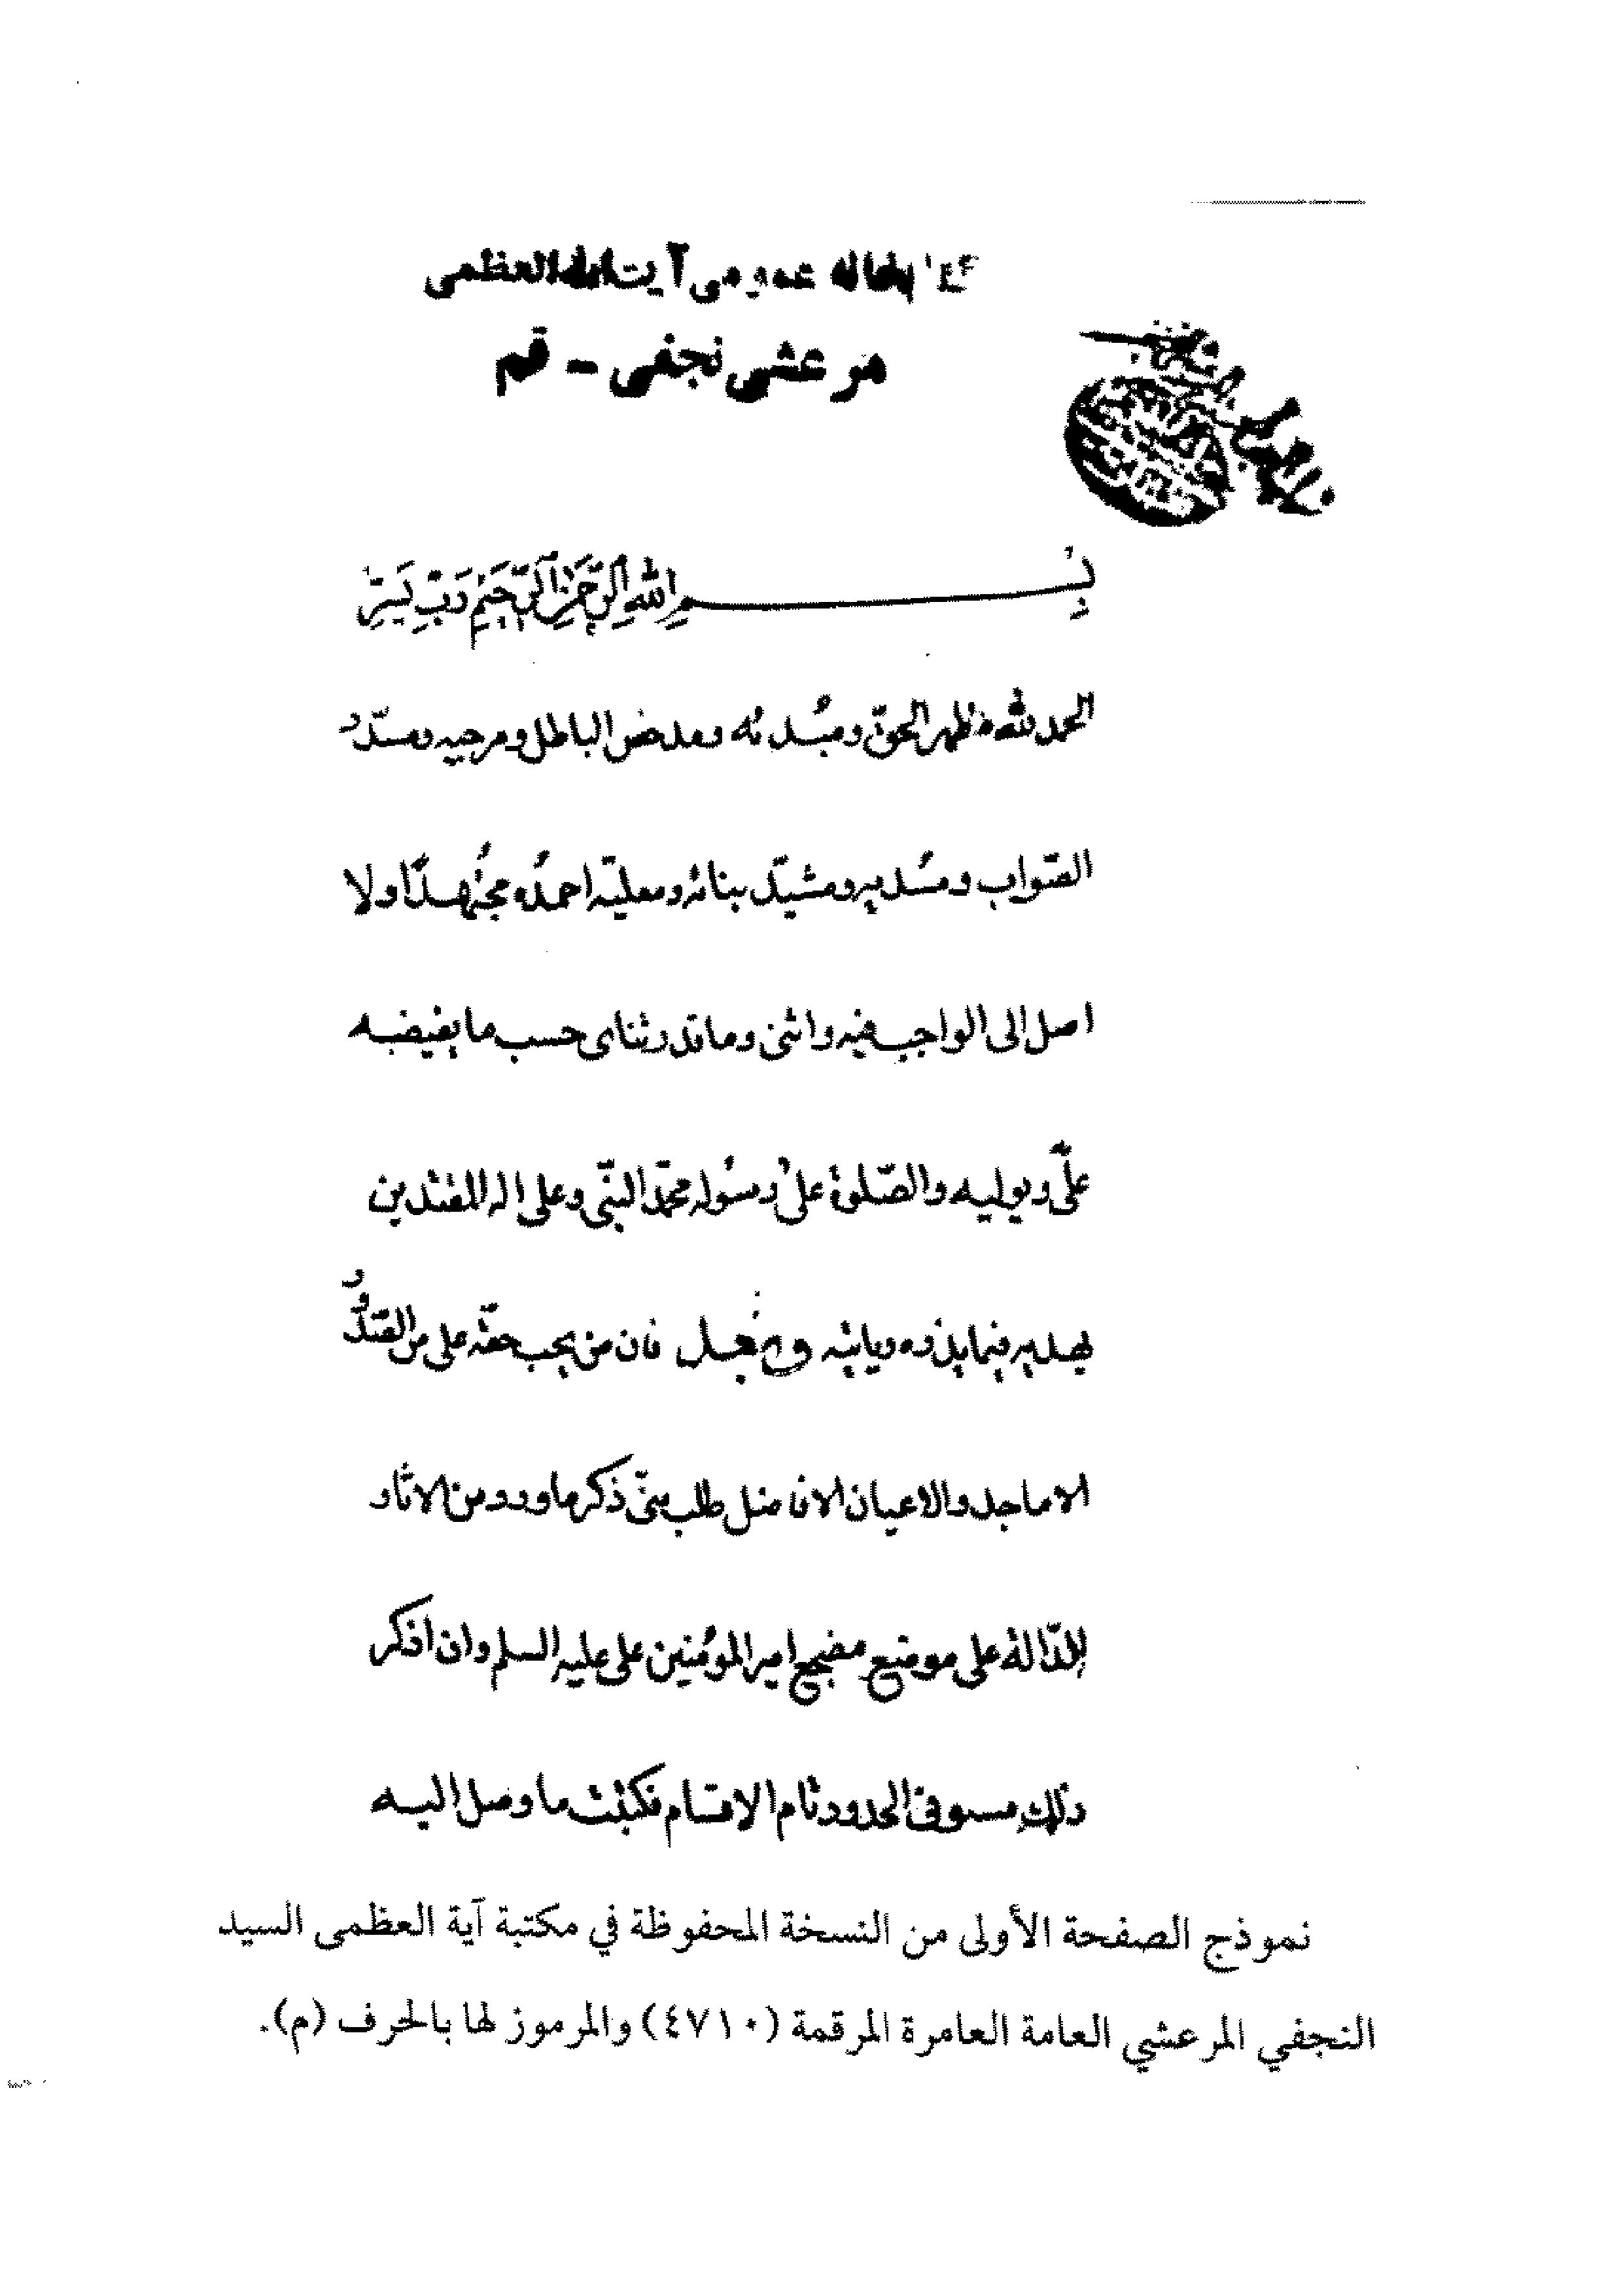 عمومی آیت الله العظمی
مرعشی نجفی - قم
بِسمِ اللهِ الرَّحمٰنِ الرَّحيمِ رَبِّ يَسِّر
الحمد لله مظهر الحقّ ومُبديه ومدحض الباطل ومرجيه ومسدّد
الصّواب ومُسديه ومشيّد بنائه ومعليّه احمدُه مجُتهدًا ولا
اصل الى الواجب فيه واثنى وما قدر ثناى حسب ما يفيضه
علىّ ويوليه والصّلوة على رسُوله محمّد النبّى وعلى اله المقتدين
بهديه فيما يذره وياتيه وبعد فان من يجب حقّه على من الصّدُور
الاماجد والاعيان الافاضل طلب منّى ذكر ما ورد من الاثار
الدّالة على موضع مضجع امير المؤمنين على عليه السلم وان اذكر
ذلك الحدود تام الاقسام فكتبت ما وصل اليه
نموذج الصفحة الأولى من النسخة المحفوظة في مكتبة آية العظمى السيد
النجفي المرعشي العامة العامرة المرقمة (٤٧١٠) والمرموز لها بالحرف (م).